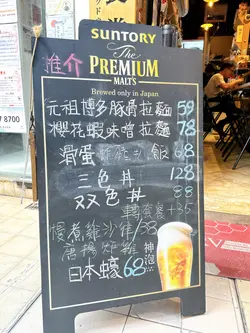 SUNTORY
The
PREMIUM
MALT'S
推介
Brewed only in Japan
元祖博多豚骨拉麵 59
櫻花蝦味噌拉麵 78
滑蛋 飯 68
三色丼 128
双色丼 88
轉 +35
慢煮雞沙律 /38
唐揚炸雞
日本蠔 68
神泡
7 8700